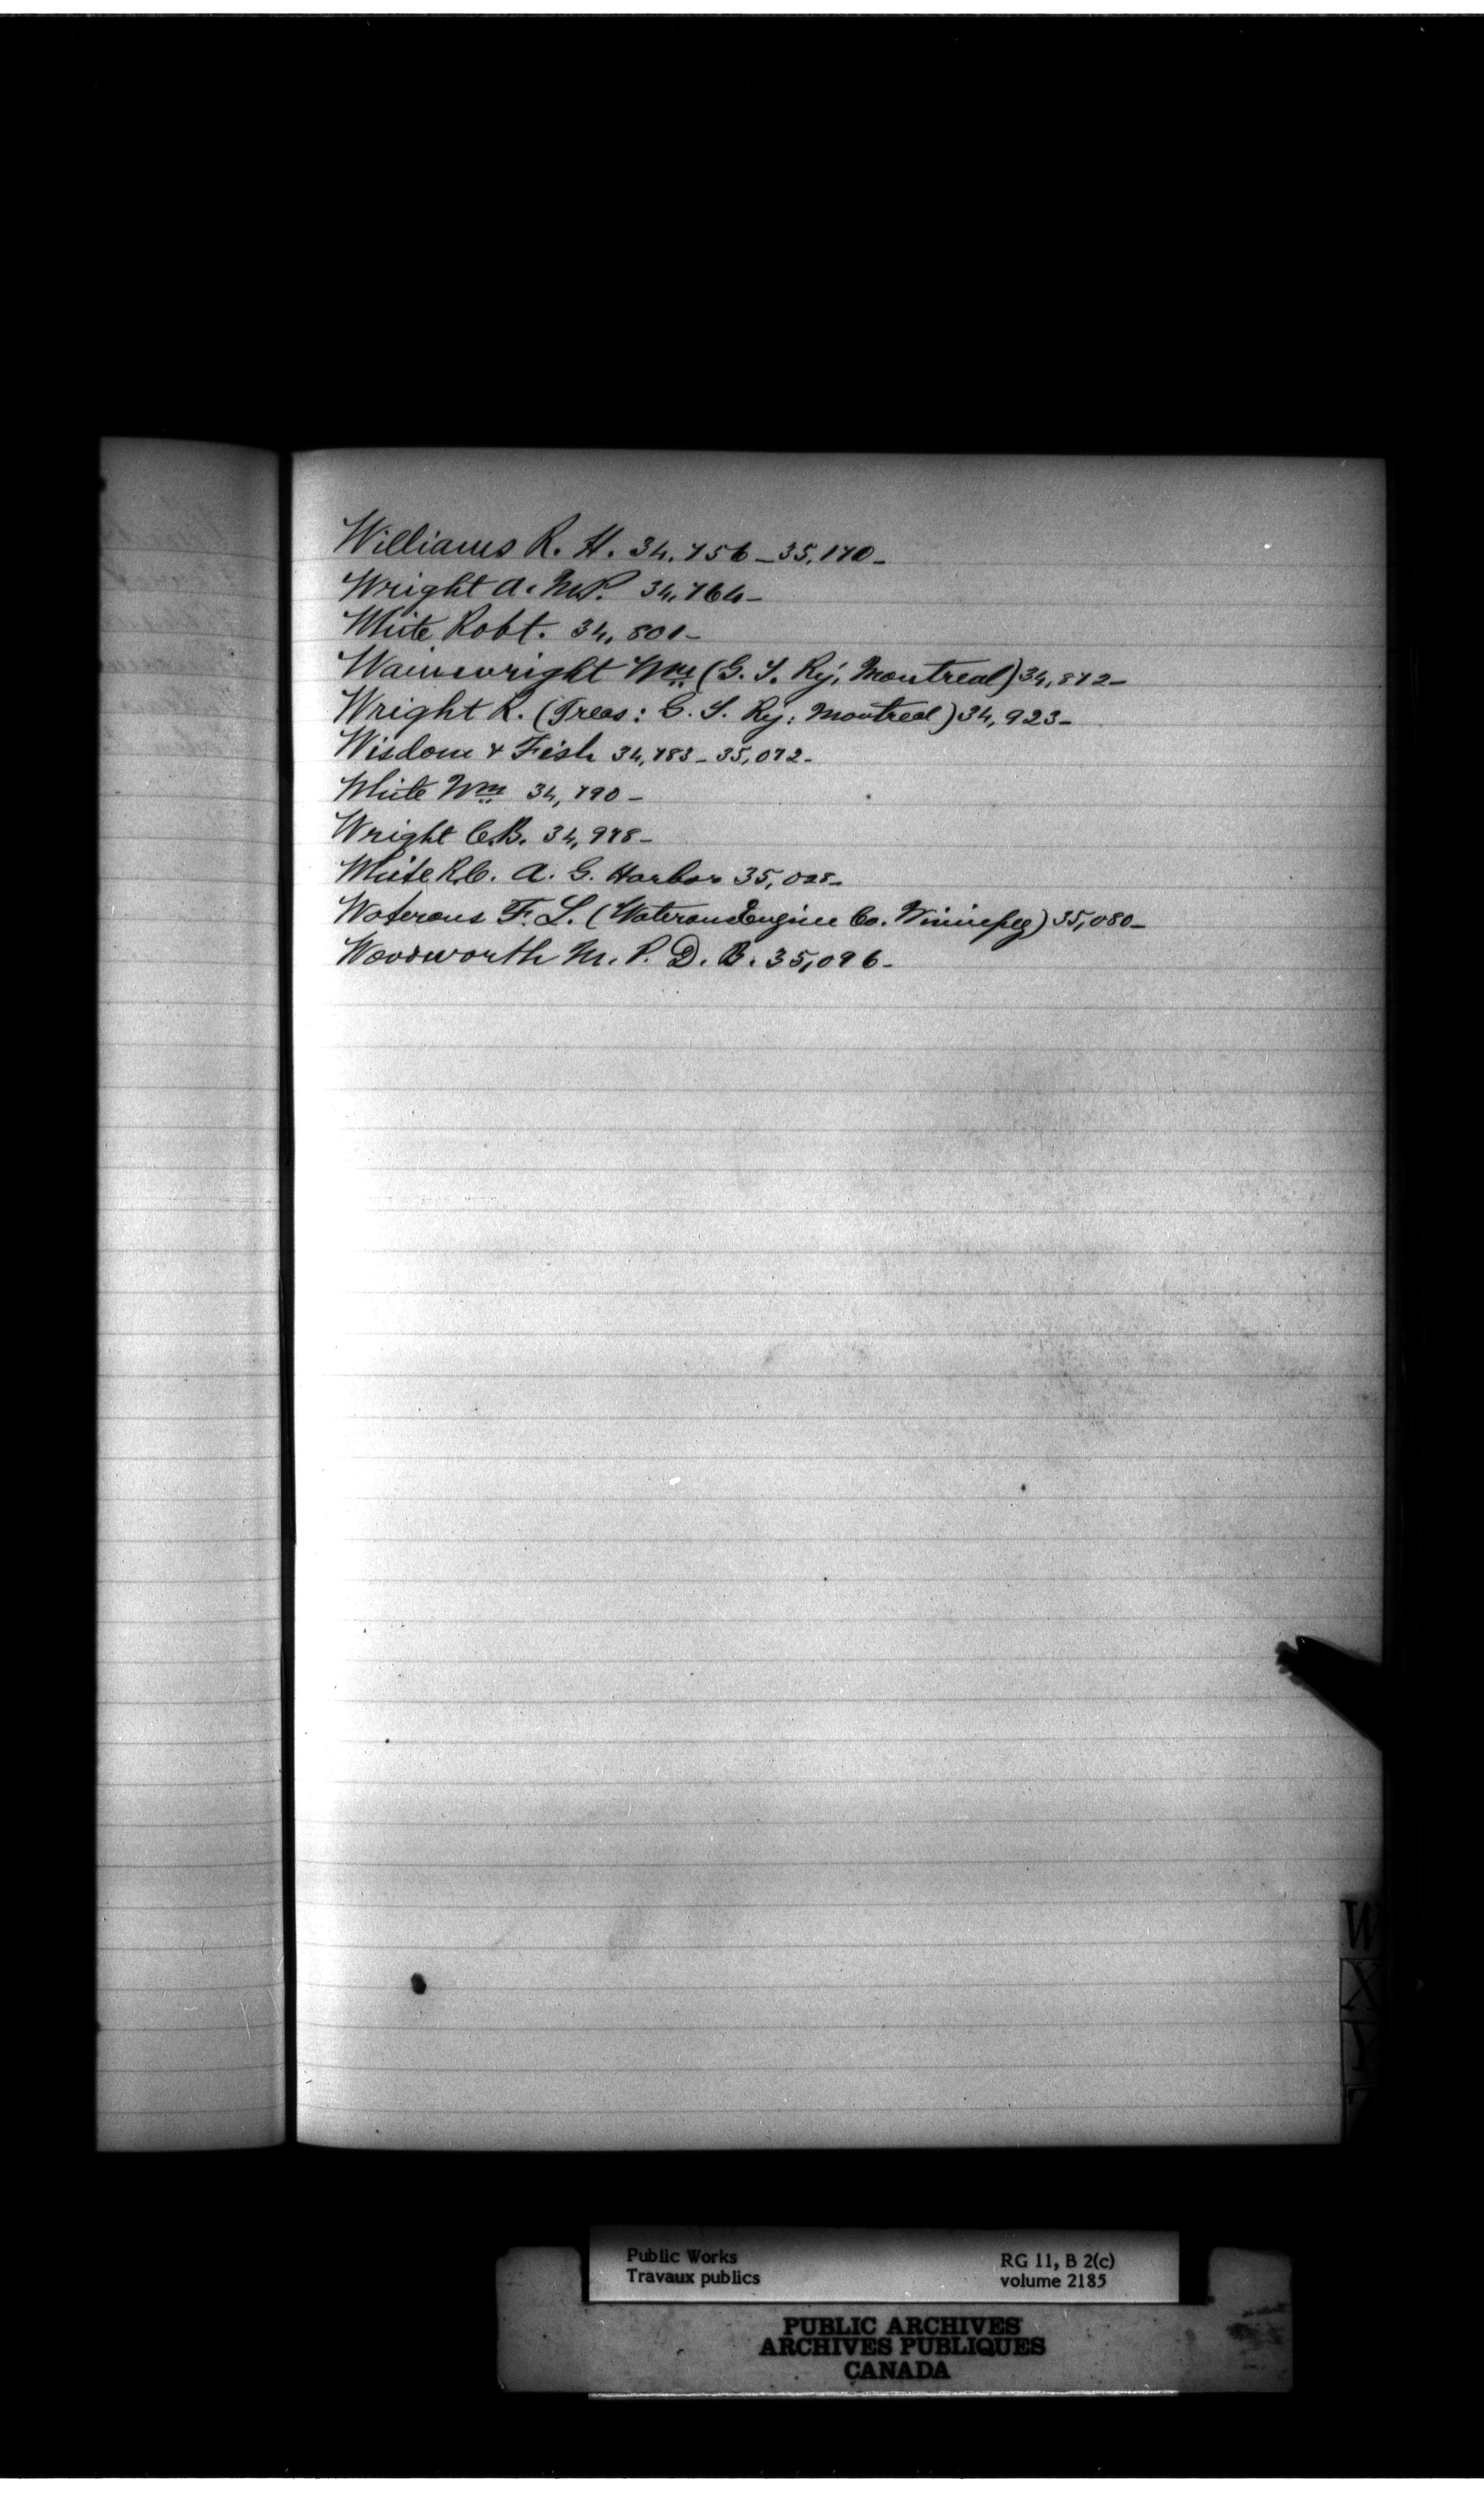 Williams R. H. 34,756 - 35,170 -
Wright A. M.P. 34,764 -
White Robt. 34,801 -
Wainwright Wm (G. T. Ry, Montreal) 34,872 -
Wright R. (Treas: G. T. Ry: Montreal) 34,923 -
Wisdom & Fish 34,783 - 35,072 -
White Wm 34,790 -
Wright C.B. 34,978 -
White R.C. A. G. Harbor 35,028 -
Waterous F. L. (Waterous Engine Co. Winnipeg) 35,080 -
Woodworth M. P. D. B. 35,096 -
W
X
Y
Z
Public Works
Travaux publics
RG 11, B 2(c)
volume 2185
PUBLIC ARCHIVES
ARCHIVES PUBLIQUES
CANADA